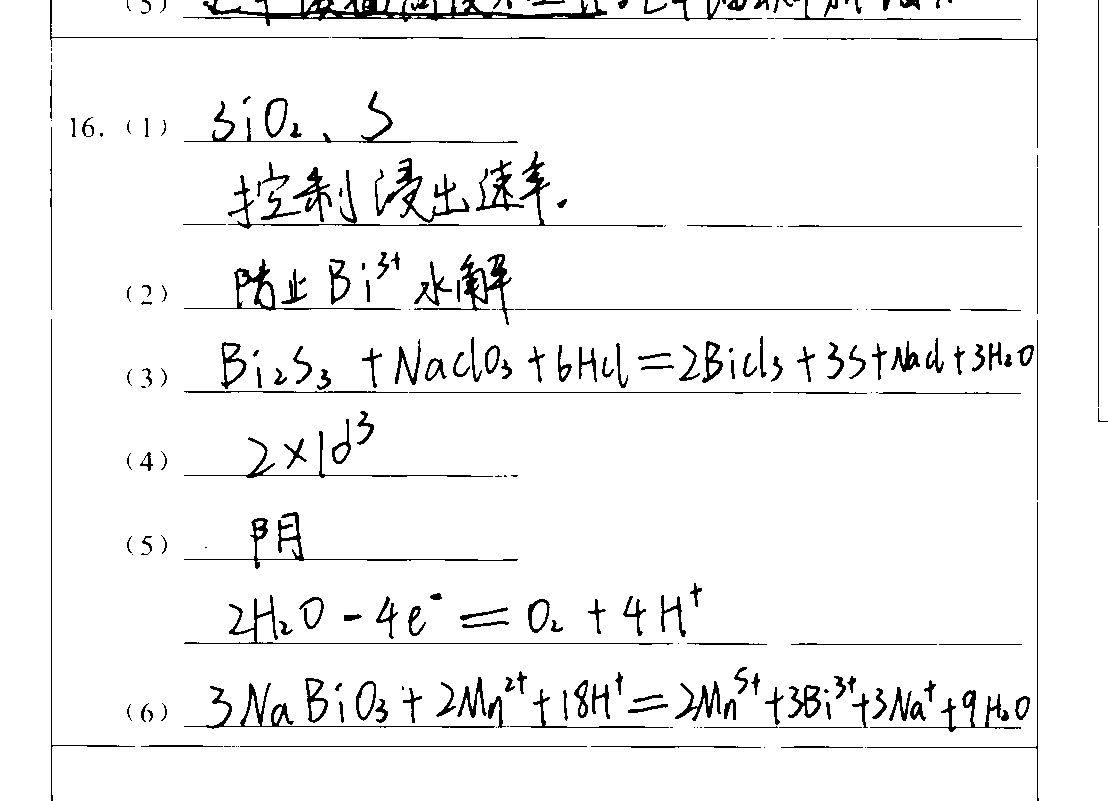 (3)
16. (1) SiO₂、S
控制浸出速率.
(2) 防止Bi³⁺水解
(3) Bi₂S₃ + NaClO₃ + 6HCl = 2BiCl₃ + 3S + NaCl + 3H₂O
(4) 2×10³
(5) 阴
2H₂O - 4e⁻ = O₂ + 4H⁺
(6) 3NaBiO₃ + 2Mn²⁺ + 18H⁺ = 2Mn⁵⁺ + 3Bi³⁺ + 3Na⁺ + 9H₂O